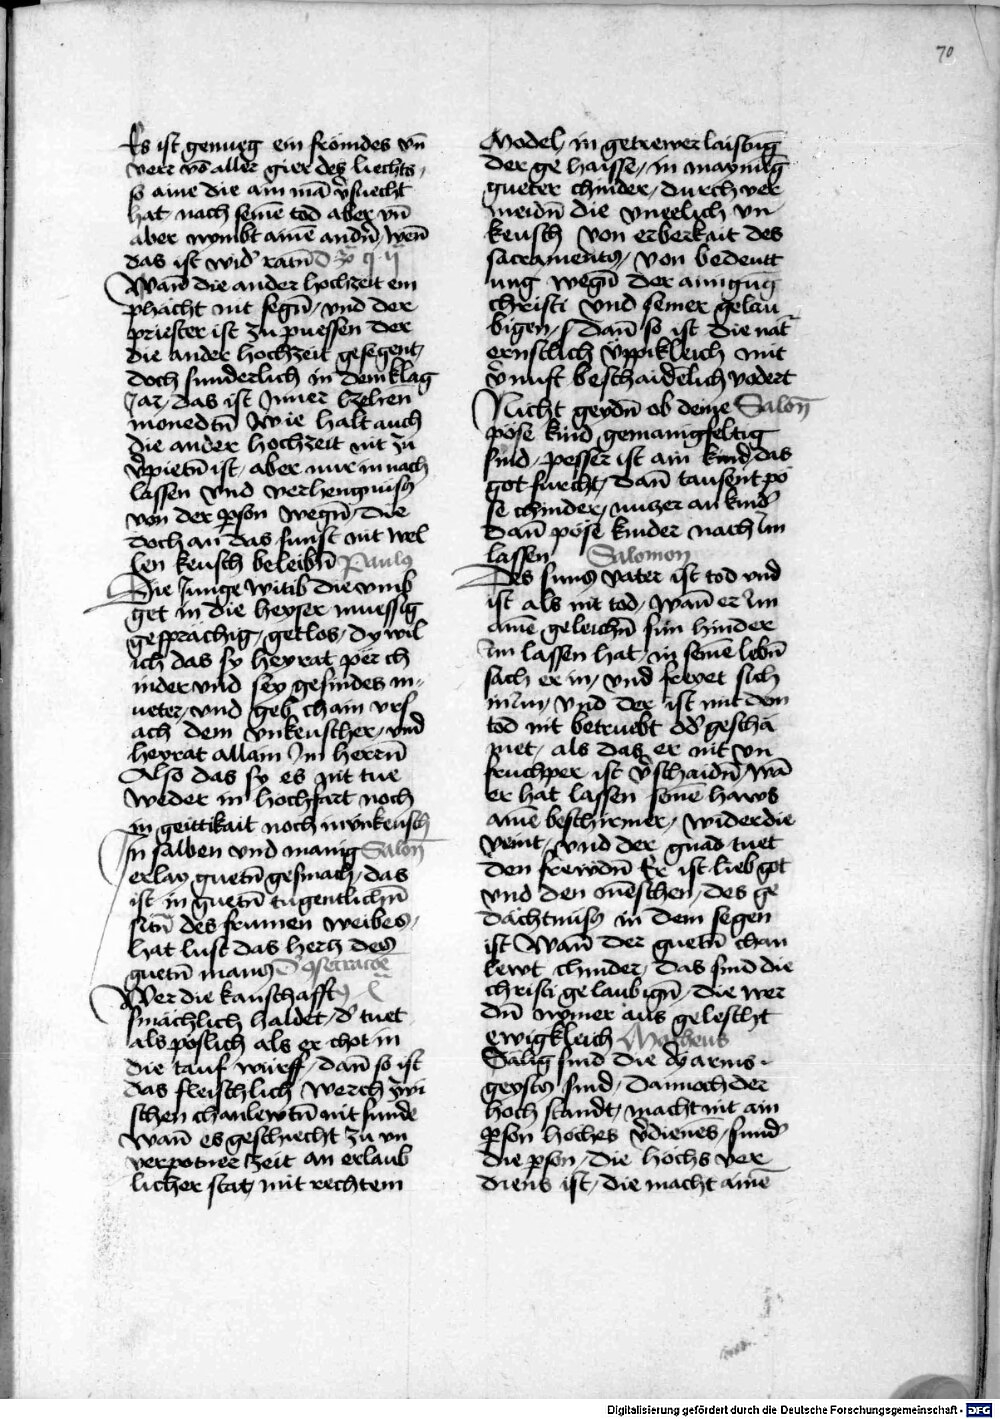 70
Es ist genueg ein frömdes vn̄
verr vō aller gier des liechts,
so aine die ain mā v̉suecht
hat nach seinē tod aber vn̄
aber nymbt ainē andn̄, wen̄
das ist wid̉ ratn̄
Wan̄ die ander hochzeit em
phächt nit segn̄, vnd der
priester ist zu puessen der
die ander hochzeit gesegent,
doch sunderlich in dem klag
Jar, das ist Inner tzehen
monedtn̄ Wie halt auch
die ander hochzeit nit zu
v̉pietn̄ ist, aber nur in nach
lassen vnd verhengnüss
von der ꝑson wegn̄, die
doch an das sunst nit wel
len keusch beleibn̄ Paulus
Die Junge witib die vmb
get in die heyser muessig
gesprächig, getlos, dy wil
ich das sy heyrat per ch
inder vnd sey gesindes m-
ueter, vnd geb chain vrs
ach dem vnkeuscher, vnd
heyrat allain Im herrn̄
Also das sy es nit tue
weder in hochfart noch
in geittikait noch in vnkeusch
In salben vnd manig Salon̄
erlay guetn̄ gesmach, das
ist in guetn̄ tugentlichn̄
sitn̄ des frumen weibes,
hat lust das hertz des
guetn̄ mans
Wer die kanschafft
smächlich haldet, d̉ tuet
als pöslich als er chot in
die tauf würff, dan̄ so ist
das fleischlich werch zwi
schen chanlewtn̄ nit sunde
wan̄ es geschiecht zu vn
verpotner zeit an erlaub
licher stat, mit rechtem
Model, in getrewer laistūg
der gehaisse, in maynūg
gueter chinder, durch ver
meidn̄ die vneelich vn
keusch von erberkait des
sacraments, von bedeutt
ung wegn̄ der ainigūg
christi vnd seiner gelau
bigen, dan̄ so ist die nat̉
ernstlich v̈ppikleich mit
v̉nuft beschaidēlich vodert
Nicht geydn̄ ob deine Salon̄
pöse kind gemanigfeltig
sind, pesser ist ain kind, das
got furcht, dan̄ tausent pö
se chinder, nutzer an kind̉
dan̄ pöse kinder nach im
lassen Salomon
Des suns vater ist tod vnd
ist als nit tod, Wan̄ er im
ainē geleichn̄ sun hinder
im lassen hat, in seinē lebn̄
sach er in, vnd frewet sich
in im, vnd der ist mit dem
tod nit betruebt od̉ geschā
met, als das er nit vn
fruchper ist v̉schaidn̄, wā
er hat lassen seinē haws
ainē beschirmer, wider die
veint, vnd der gnad tuet
den frewdn̄ Er ist lieb got
vnd den mēschen, des ge
dächtnüss in dem segen
ist Wan̄ der guetn̄ chan
lewt chinder, das sind die
christi gelaubign̄, die wer
dn̄ nymer aus gelescht
ewigkleich Matheus
Sälig sind die dy arms
geysts sind, Dannoch der
hoch standt, macht nit ain
ꝑson hoches v̉dienēs, sund̉
die ꝑson, die hochs ver
diens ist, die macht ainē
Digitalisierung gefördert durch die Deutsche Forschungsgemeinschaft - DFG